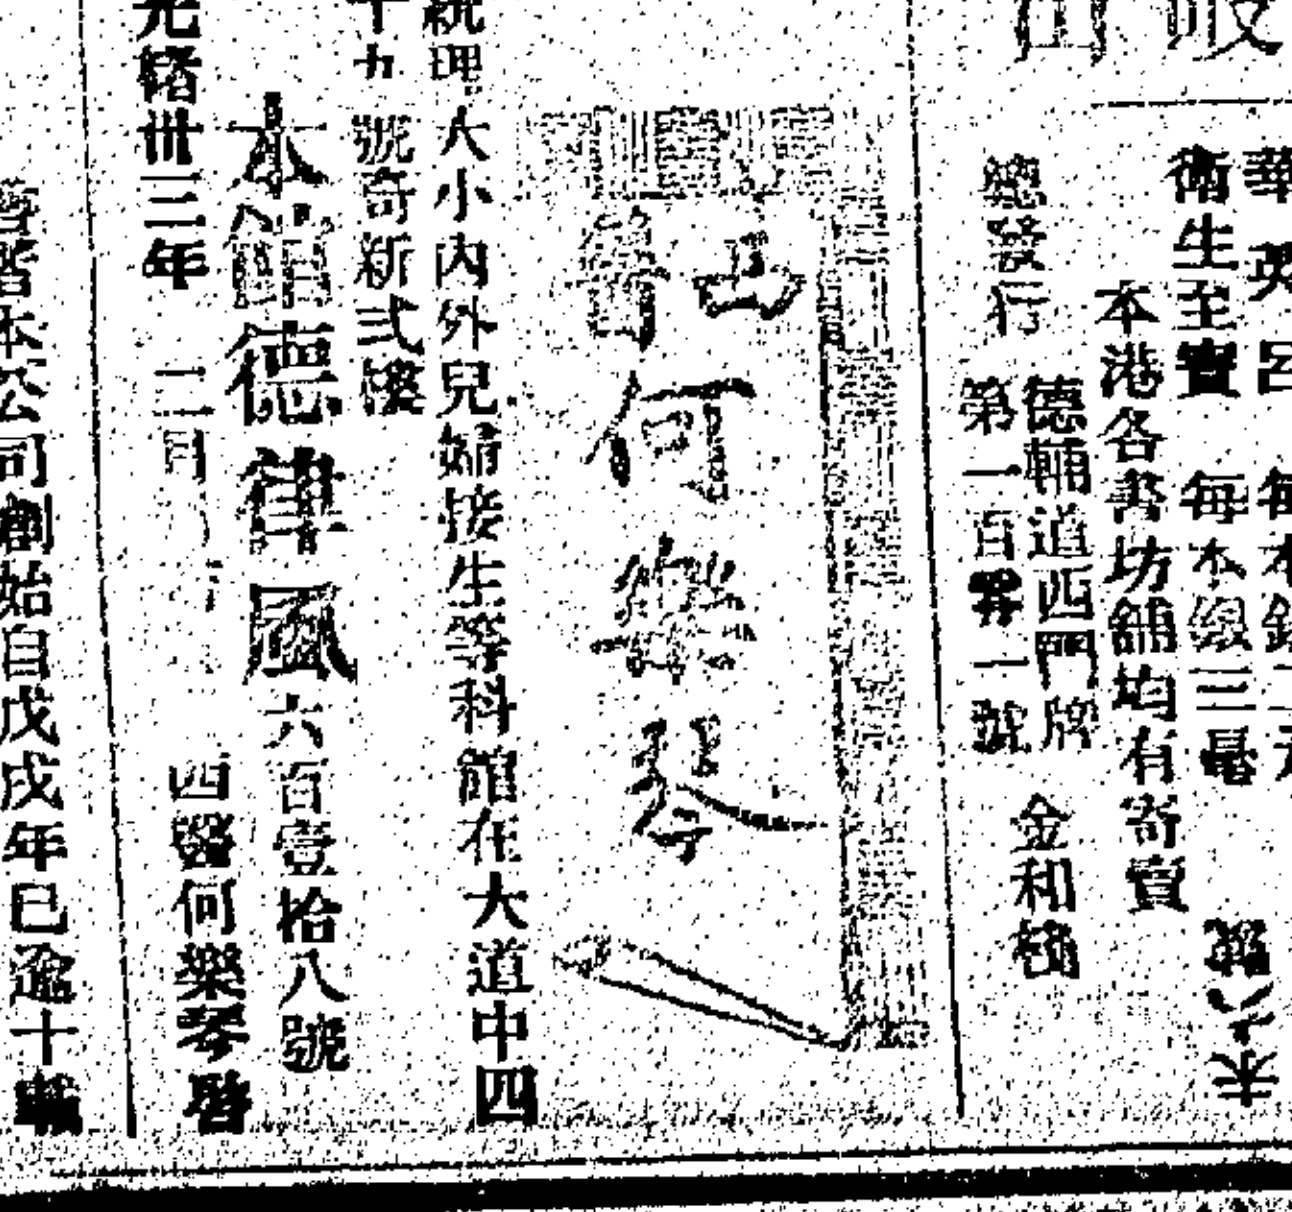 華英呂 每本銀二元
衛生至寶 每本銀三毫
本港各書坊舖均有寄賣
德輔道西門牌
總發行 第一百零一號 金和
西
醫何樂琴
統理大小內外兒婦接生等科館在大道中四
十九號奇新式樓
本館德律風六百壹拾八號
光緒卅三年二月 西醫何樂琴啓
本公司創始自戊戌年已逾十載